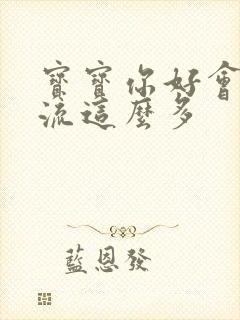 寶寶你好會
流這麼多
藍恩發